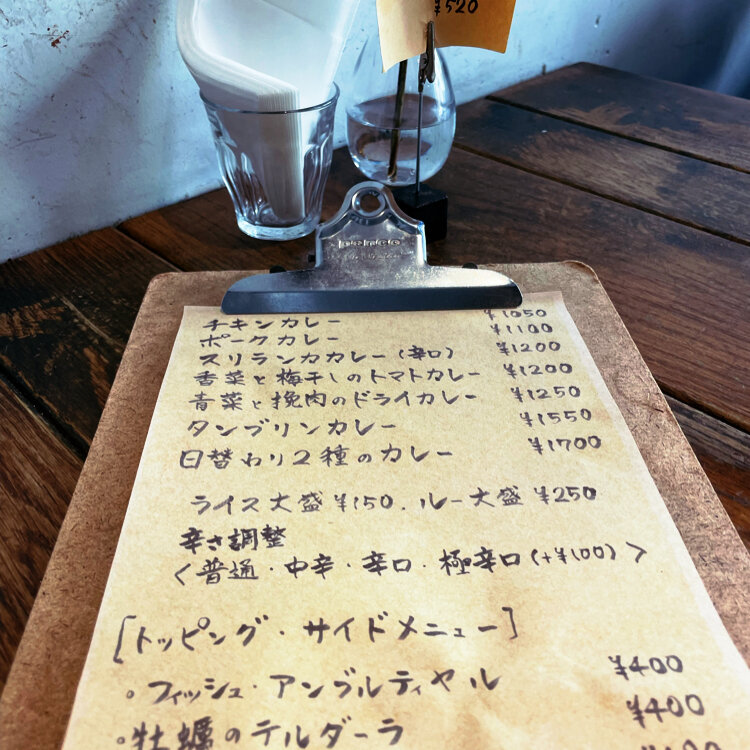 ¥520
チキンカレー ¥1050
ポークカレー ¥1100
スリランカカレー(辛口) ¥1200
香菜と梅干しのトマトカレー ¥1200
青菜と挽肉のドライカレー ¥1250
タンブリンカレー ¥1550
日替わり2種のカレー ¥1700
ライス大盛¥150.ルー大盛¥250
辛さ調整
<普通・中辛・辛口・極辛口(+¥100)>
[トッピング・サイドメニュー]
・フィッシュ・アンブルティヤル ¥400
・牡蠣のテルダーラ ¥400